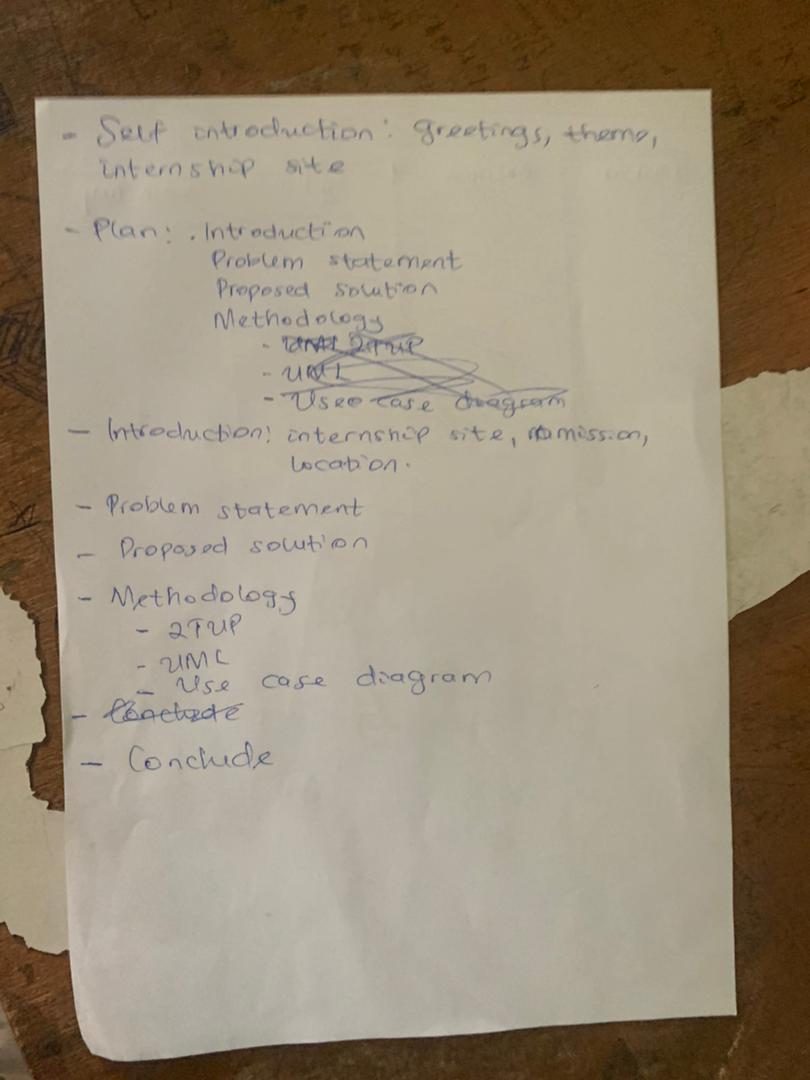 - Self introduction: greetings, theme,
internship site
- Plan: . Introduction
Problem statement
Proposed solution
Methodology
- UML 2TUP
- UML
- Use case diagram
- Introduction: internship site, mission,
location.
- Problem statement
- Proposed solution
- Methodology
- 2TUP
- UML
- Use case diagram
- Conclude
- Conclude